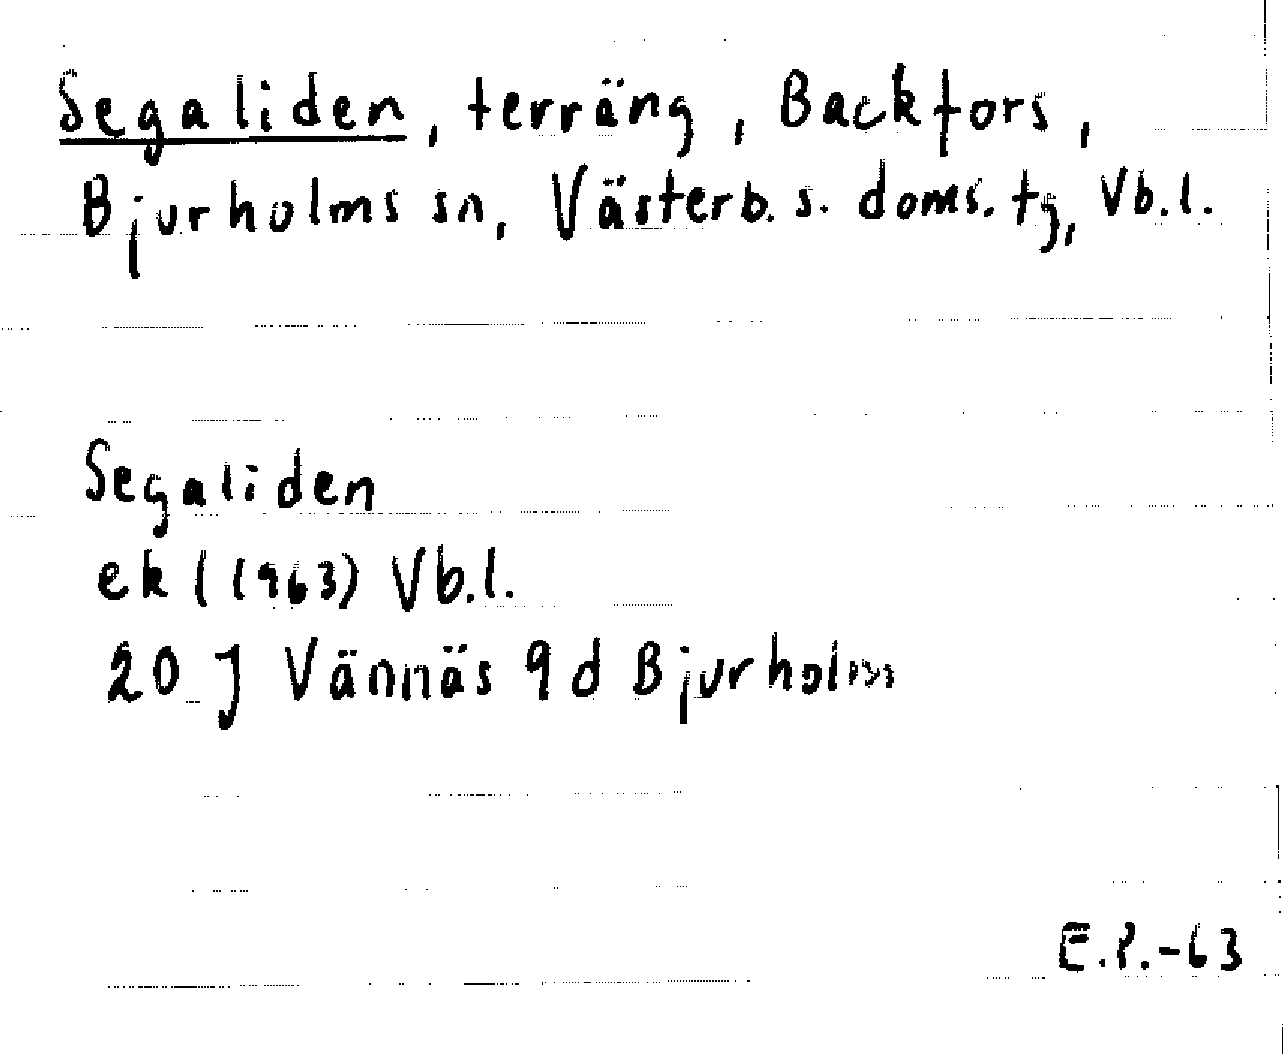 Segaliden, terräng, Backfors,
Bjurholms sn, Västerb. s. doms. tg, Vb.l.
Segaliden
ek l (1963) Vb.l.
20 J Vännäs 9 d Bjurholm
E.P.-63